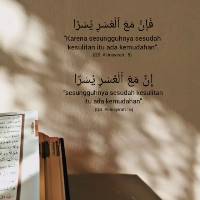 فَإِنَّ مَعَ ٱلْعُسْرِ يُسْرًا
"Karena sesungguhnya sesudah
kesulitan itu ada kemudahan".
(QS. Al-Insyirah : 5)
إِنَّ مَعَ ٱلْعُسْرِ يُسْرًا
"sesungguhnya sesudah kesulitan
itu ada kemudahan".
(QS. Al-Insyirah : 6)